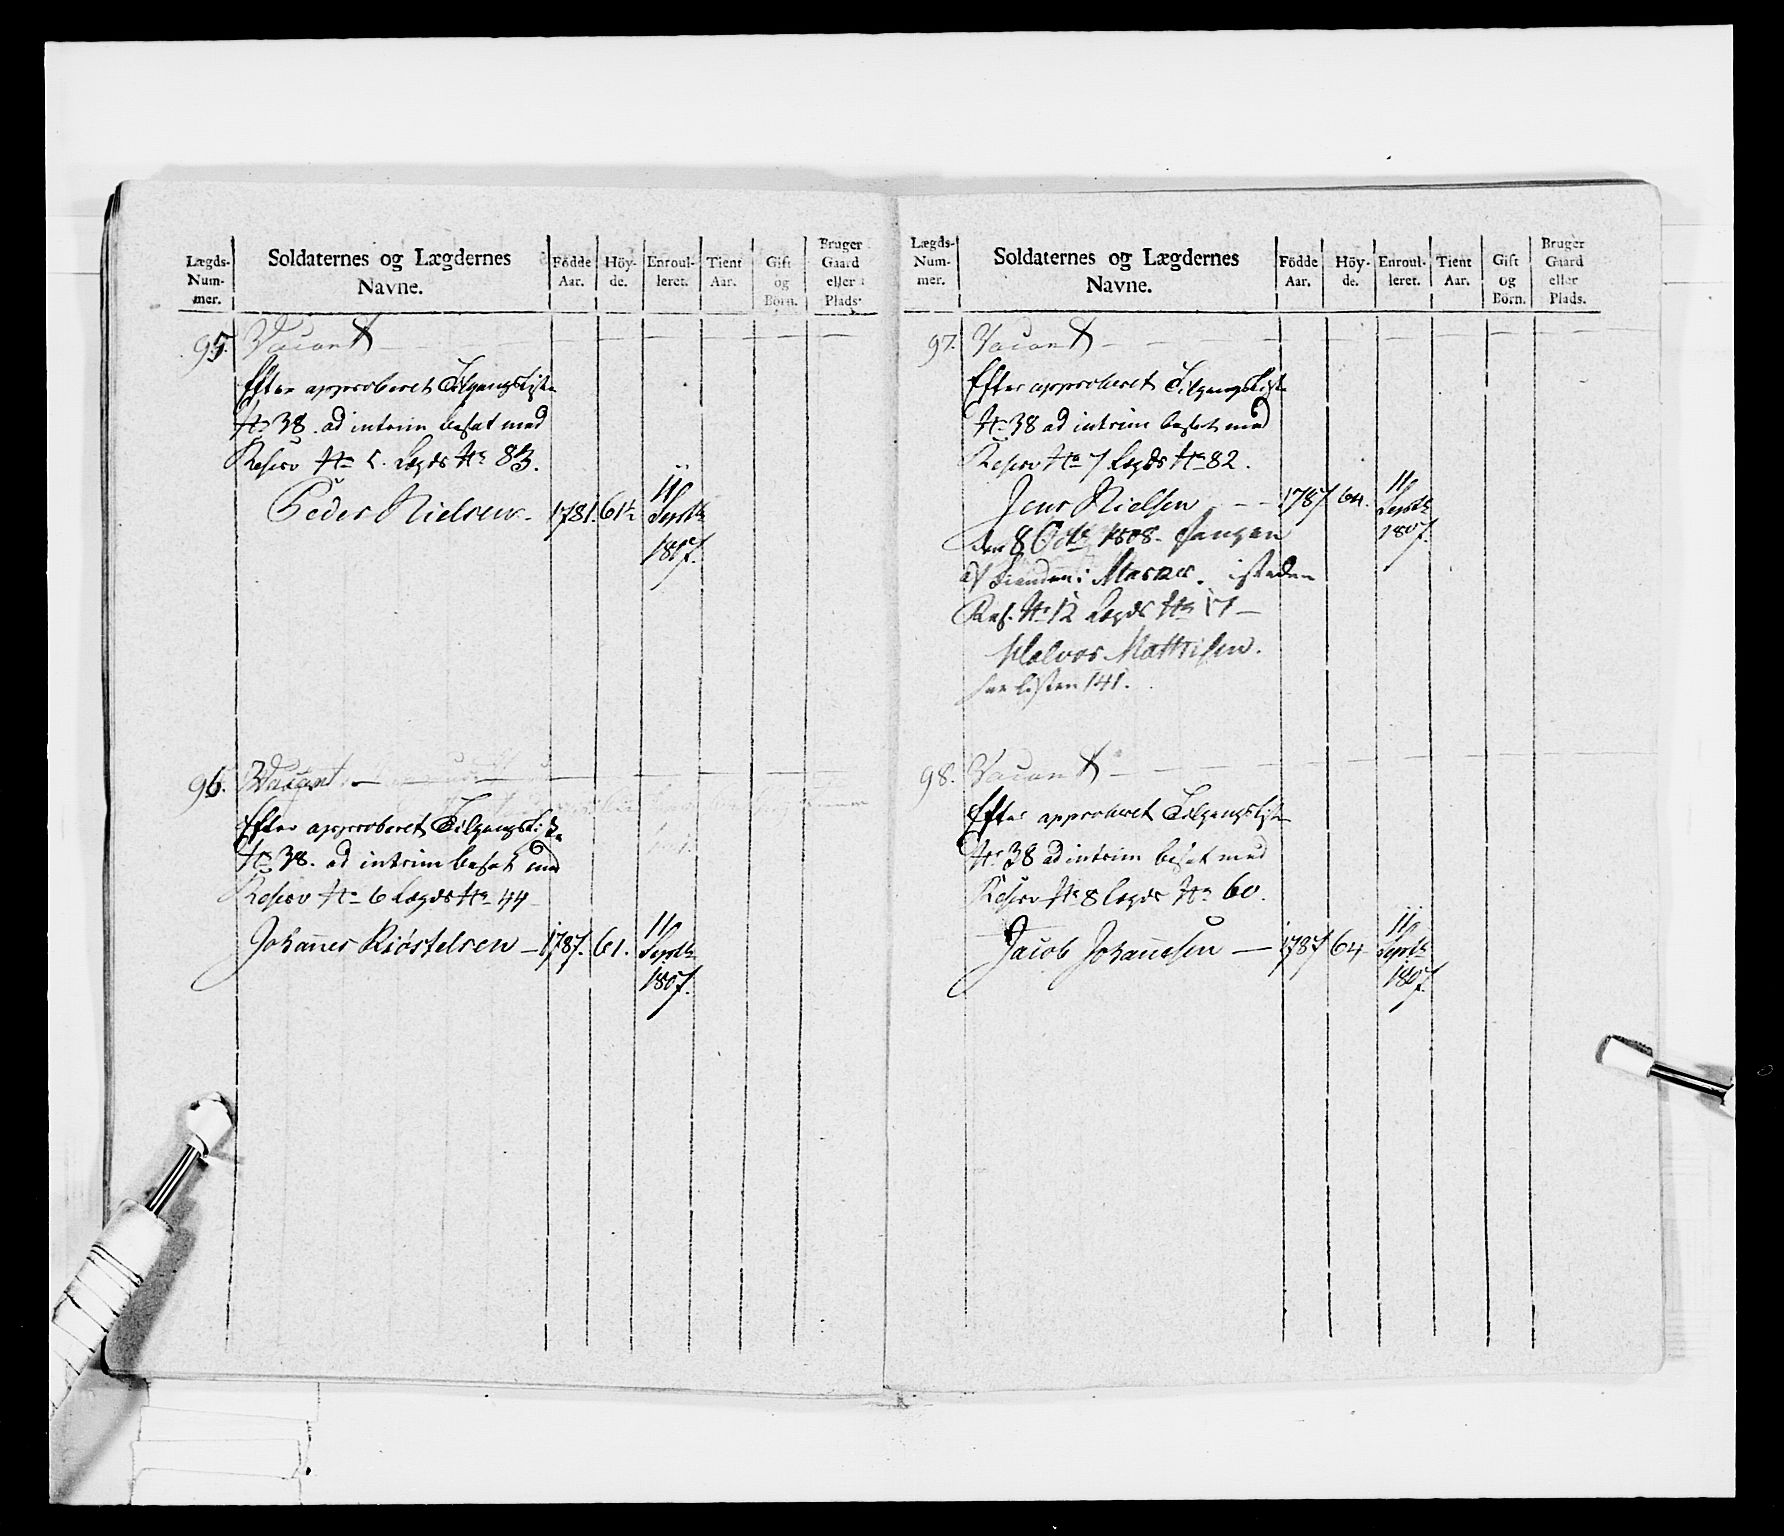 Lægds-Num-mer. Soldaternes og Lægdernes Navne. Födde Aar. Höy-de. Enroul-leret. Tient Aar. Gift og Börn. Bruger Gaard eller Plads.
95. Vacant
Efter approberet Tilgangs Liste
No 38. ad interim besat med
Reserv No 5. Lægds No 83.
Peder Nielsen. 1781. 61½ 11 Septb 1807.
96. Vacant
Efter approberet Tilgangs Liste
No 38. ad interim besat med
Reserv No 6 Lægds No 44
Johannes Kiöstelsen 1787. 61. 11 Septb 1807.
Lægds-Num-mer. Soldaternes og Lægdernes Navne. Födde Aar. Höy-de. Enroul-leret. Tient Aar. Gift og Börn. Bruger Gaard eller Plads.
97. Vacant
Efter approberet Tilgangs Liste
No 38 ad interim besat med
Reserv No 7 Lægds No 82.
Jens Nielsen 1787. 64. 11 Septb 1807.
den 8 Octb 1808. fangen
af Fienden i isteden
Res. No 12 Lægds No 17
Halvor Mathisen.
see listen 141.
98. Vacant
Efter approberet Tilgangs Liste
No 38 ad interim besat med
Reserv No 8 Lægds No 60.
Jacob Johannesen 1787 64 11 Septb 1807.